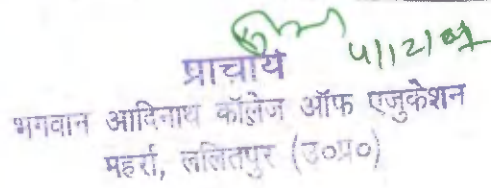 4/12/07
प्राचार्य
भगवान आदिनाथ कॉलेज ऑफ एजुकेशन
महर्रा, ललितपुर (उ०प्र०)